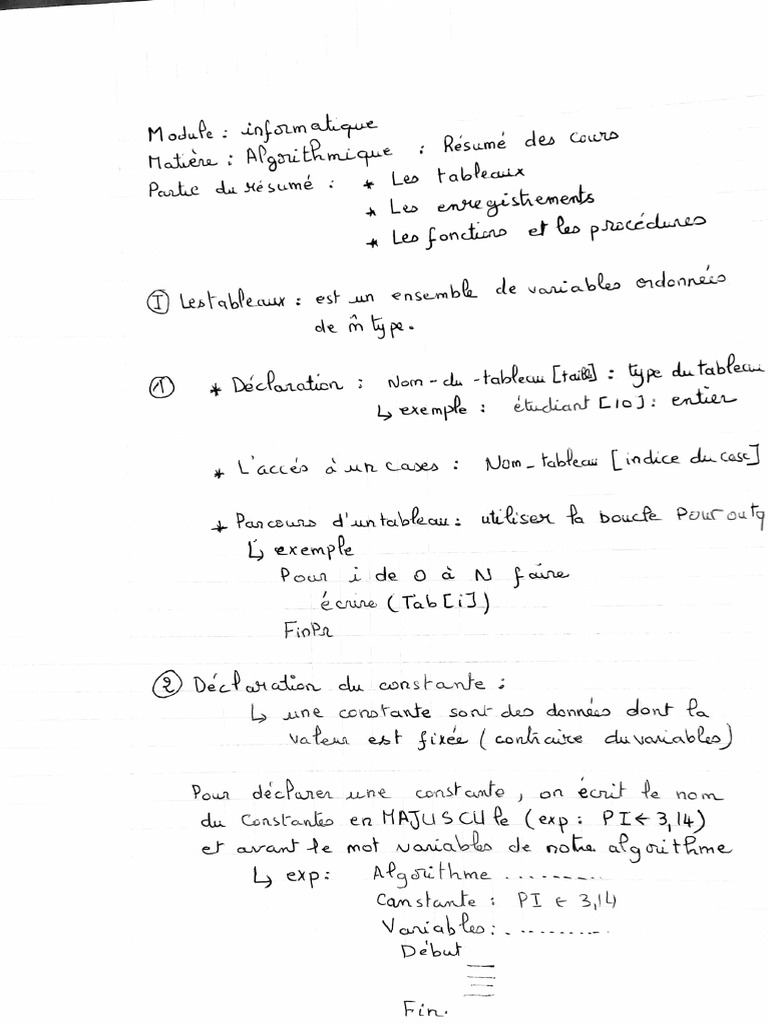 Module : informatique
Matière : Algorithmique : Résumé des cours
Partie du résumé : * Les tableaux
* Les enregistrements
* Les fonctions et les procédures
I Les tableaux : est un ensemble de variables ordonnées
de m̂ type.
1 * Déclaration : Nom-du-tableau [taille] : type du tableau
↳ exemple : étudiant [10] : entier
* L'accés à un cases : Nom_tableau [indice du case]
* Parcours d'un tableau : utiliser la boucle Pour ou tq
↳ exemple
Pour i de 0 à N faire
écrire (Tab[i])
FinPr
2 Déclaration du constante :
↳ une constante sont des données dont la
valeur est fixée (contraire du variables)
Pour déclarer une constante, on écrit le nom
du constantes en MAJUSCULe (exp : PI ← 3,14)
et avant le mot variables de notre algorithme
↳ exp : Algorithme ..........
Constante : PI ← 3,14
Variables : ...........
Début
Fin.